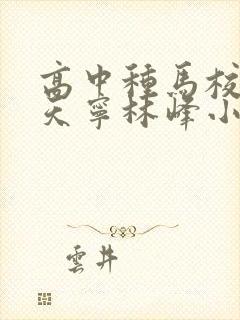 高中種馬校
天寧林峰小
雲井